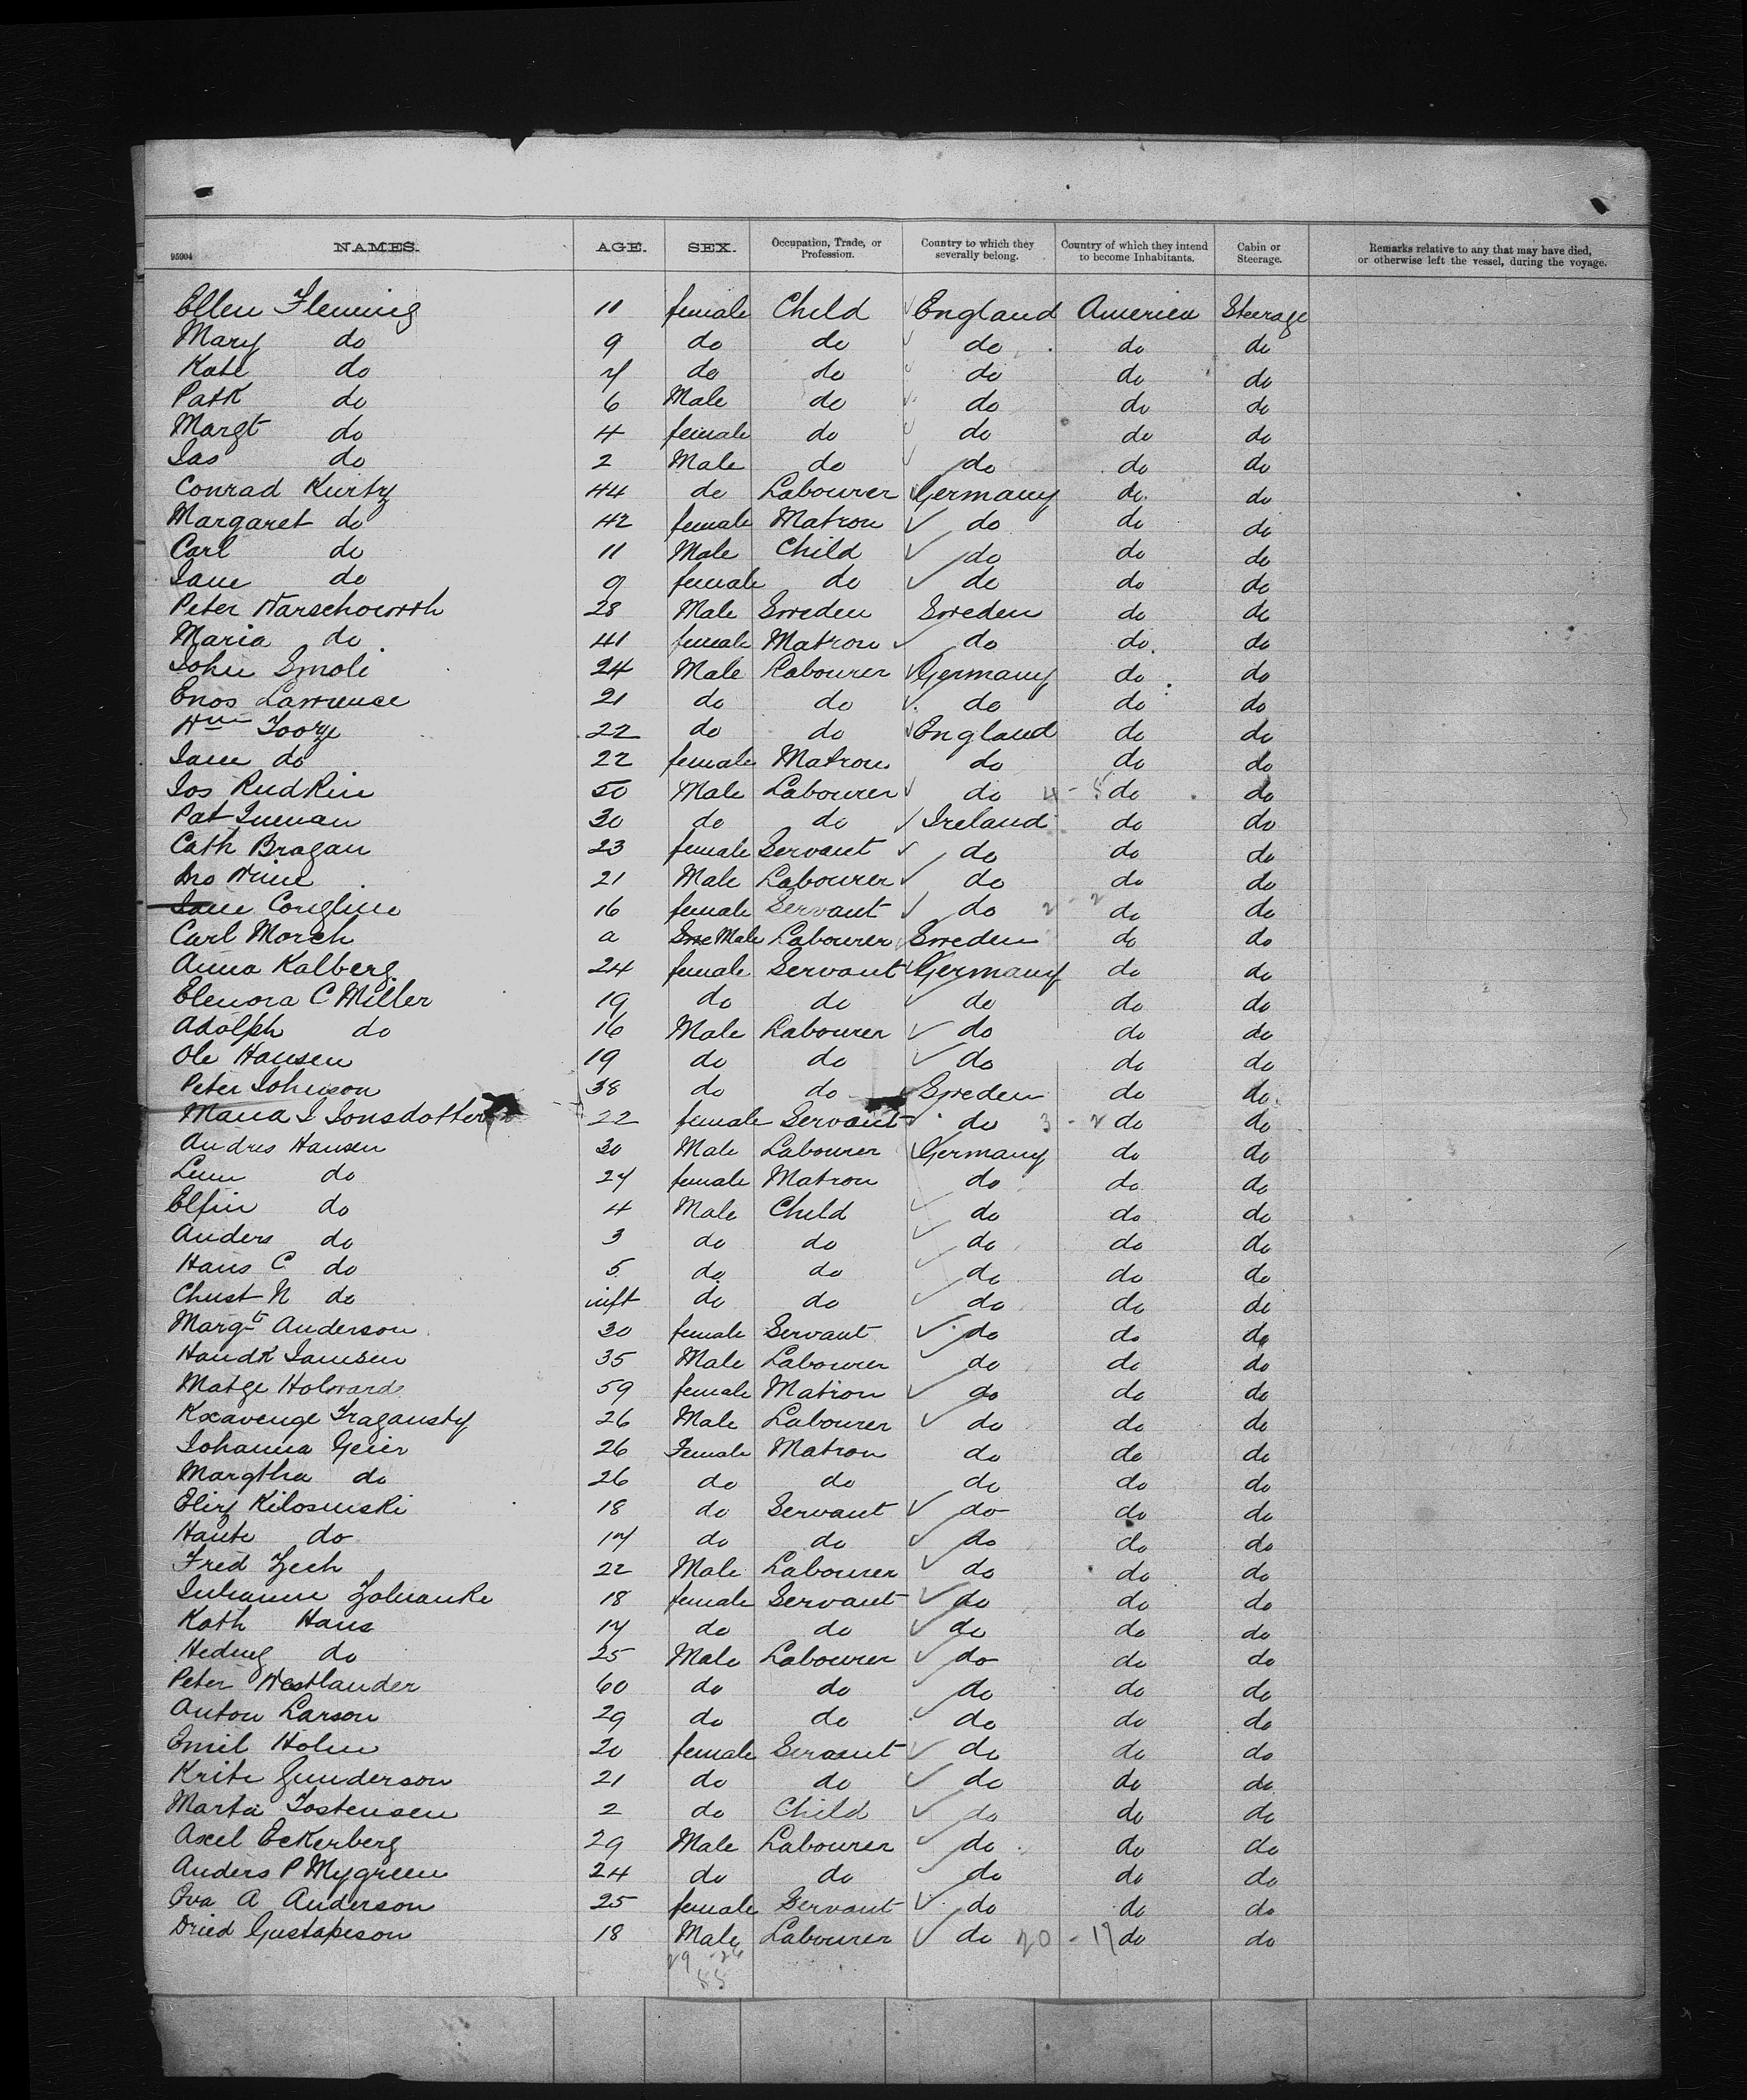 95904 NAMES. AGE. SEX. Occupation, Trade, or Profession. Country to which they severally belong. Country of which they intend to become Inhabitants. Cabin or Steerage. Remarks relative to any that may have died, or otherwise left the vessel, during the voyage.
Ellen Fleming 11 female Child England America Steerage
Mary do 9 do do do do do
Kate do 7 do do do do do
Patk do 6 Male do do do do
Margt do 4 female do do do do
Jas do 2 Male do do do do
Conrad Kurtz 44 do Labourer Germany do do
Margaret do 42 female Matron do do do
Carl do 11 Male Child do do do
Jane do 9 female do do do do
Peter Warschoworth 28 Male Sweden Sweden do do
Maria do 41 female Matron do do do
John Smoli 24 Male Labourer Germany do do
Enos Lawrence 21 do do do do do
Wm Tooze 22 do do England do do
Jane do 22 female Matron do do do
Jos Rudkin 50 Male Labourer do 4 - 5 do do
Pat 30 do do Ireland do do
Cath Bragan 23 female Servant do do do
Jno 21 Male Labourer do do do
Jane Congline 16 female Servant do 2 - 2 do do
Carl Morch a Male Labourer Sweden do do
Anna Kalberg 24 female Servant Germany do do
Elenora C Miller 19 do do do do do
Adolph do 16 Male Labourer do do do
Ole Hansen 19 do do do do do
Peter Johnson 38 do do Sweden do do
Maria J Jonsdotter 22 female Servant do 3 - 2 do do
Andres Hansen 30 Male Labourer Germany do do
Lene do 27 female Matron do do do
Elfin do 4 Male Child do do do
Anders do 3 do do do do do
Hans C do 5 do do do do do
Christ N do inft do do do do do
Margt Anderson 30 female Servant do do do
Handk Jamsen 35 Male Labourer do do do
Matge Holward 59 female Matron do do do
Kxavenge Fragansty 26 Male Labourer do do do
Johanna Geier 26 Female Matron do do do
Margtha do 26 do do do do do
Eliz Kilosmski 18 do Servant do do do
Hante do 17 do do do do do
Fred Zech 22 Male Labourer do do do
Julianne Zolnanke 18 female Servant do do do
Kath Hans 17 do do do do do
Hedwg do 25 Male Labourer do do do
Peter Westlander 60 do do do do do
Anton Larson 29 do do do do do
Emil Holm 20 female Servant do do do
Krite Gunderson 21 do do do do do
Marta Tostensen 2 do Child do do do
Axel Eckerberg 29 Male Labourer do do do
Anders P Mygreen 24 do do do do do
Eva A Anderson 25 female Servant do do do
Dried Gustapeson 18 Male Labourer do 20 - 17 do do
29 - 26
55